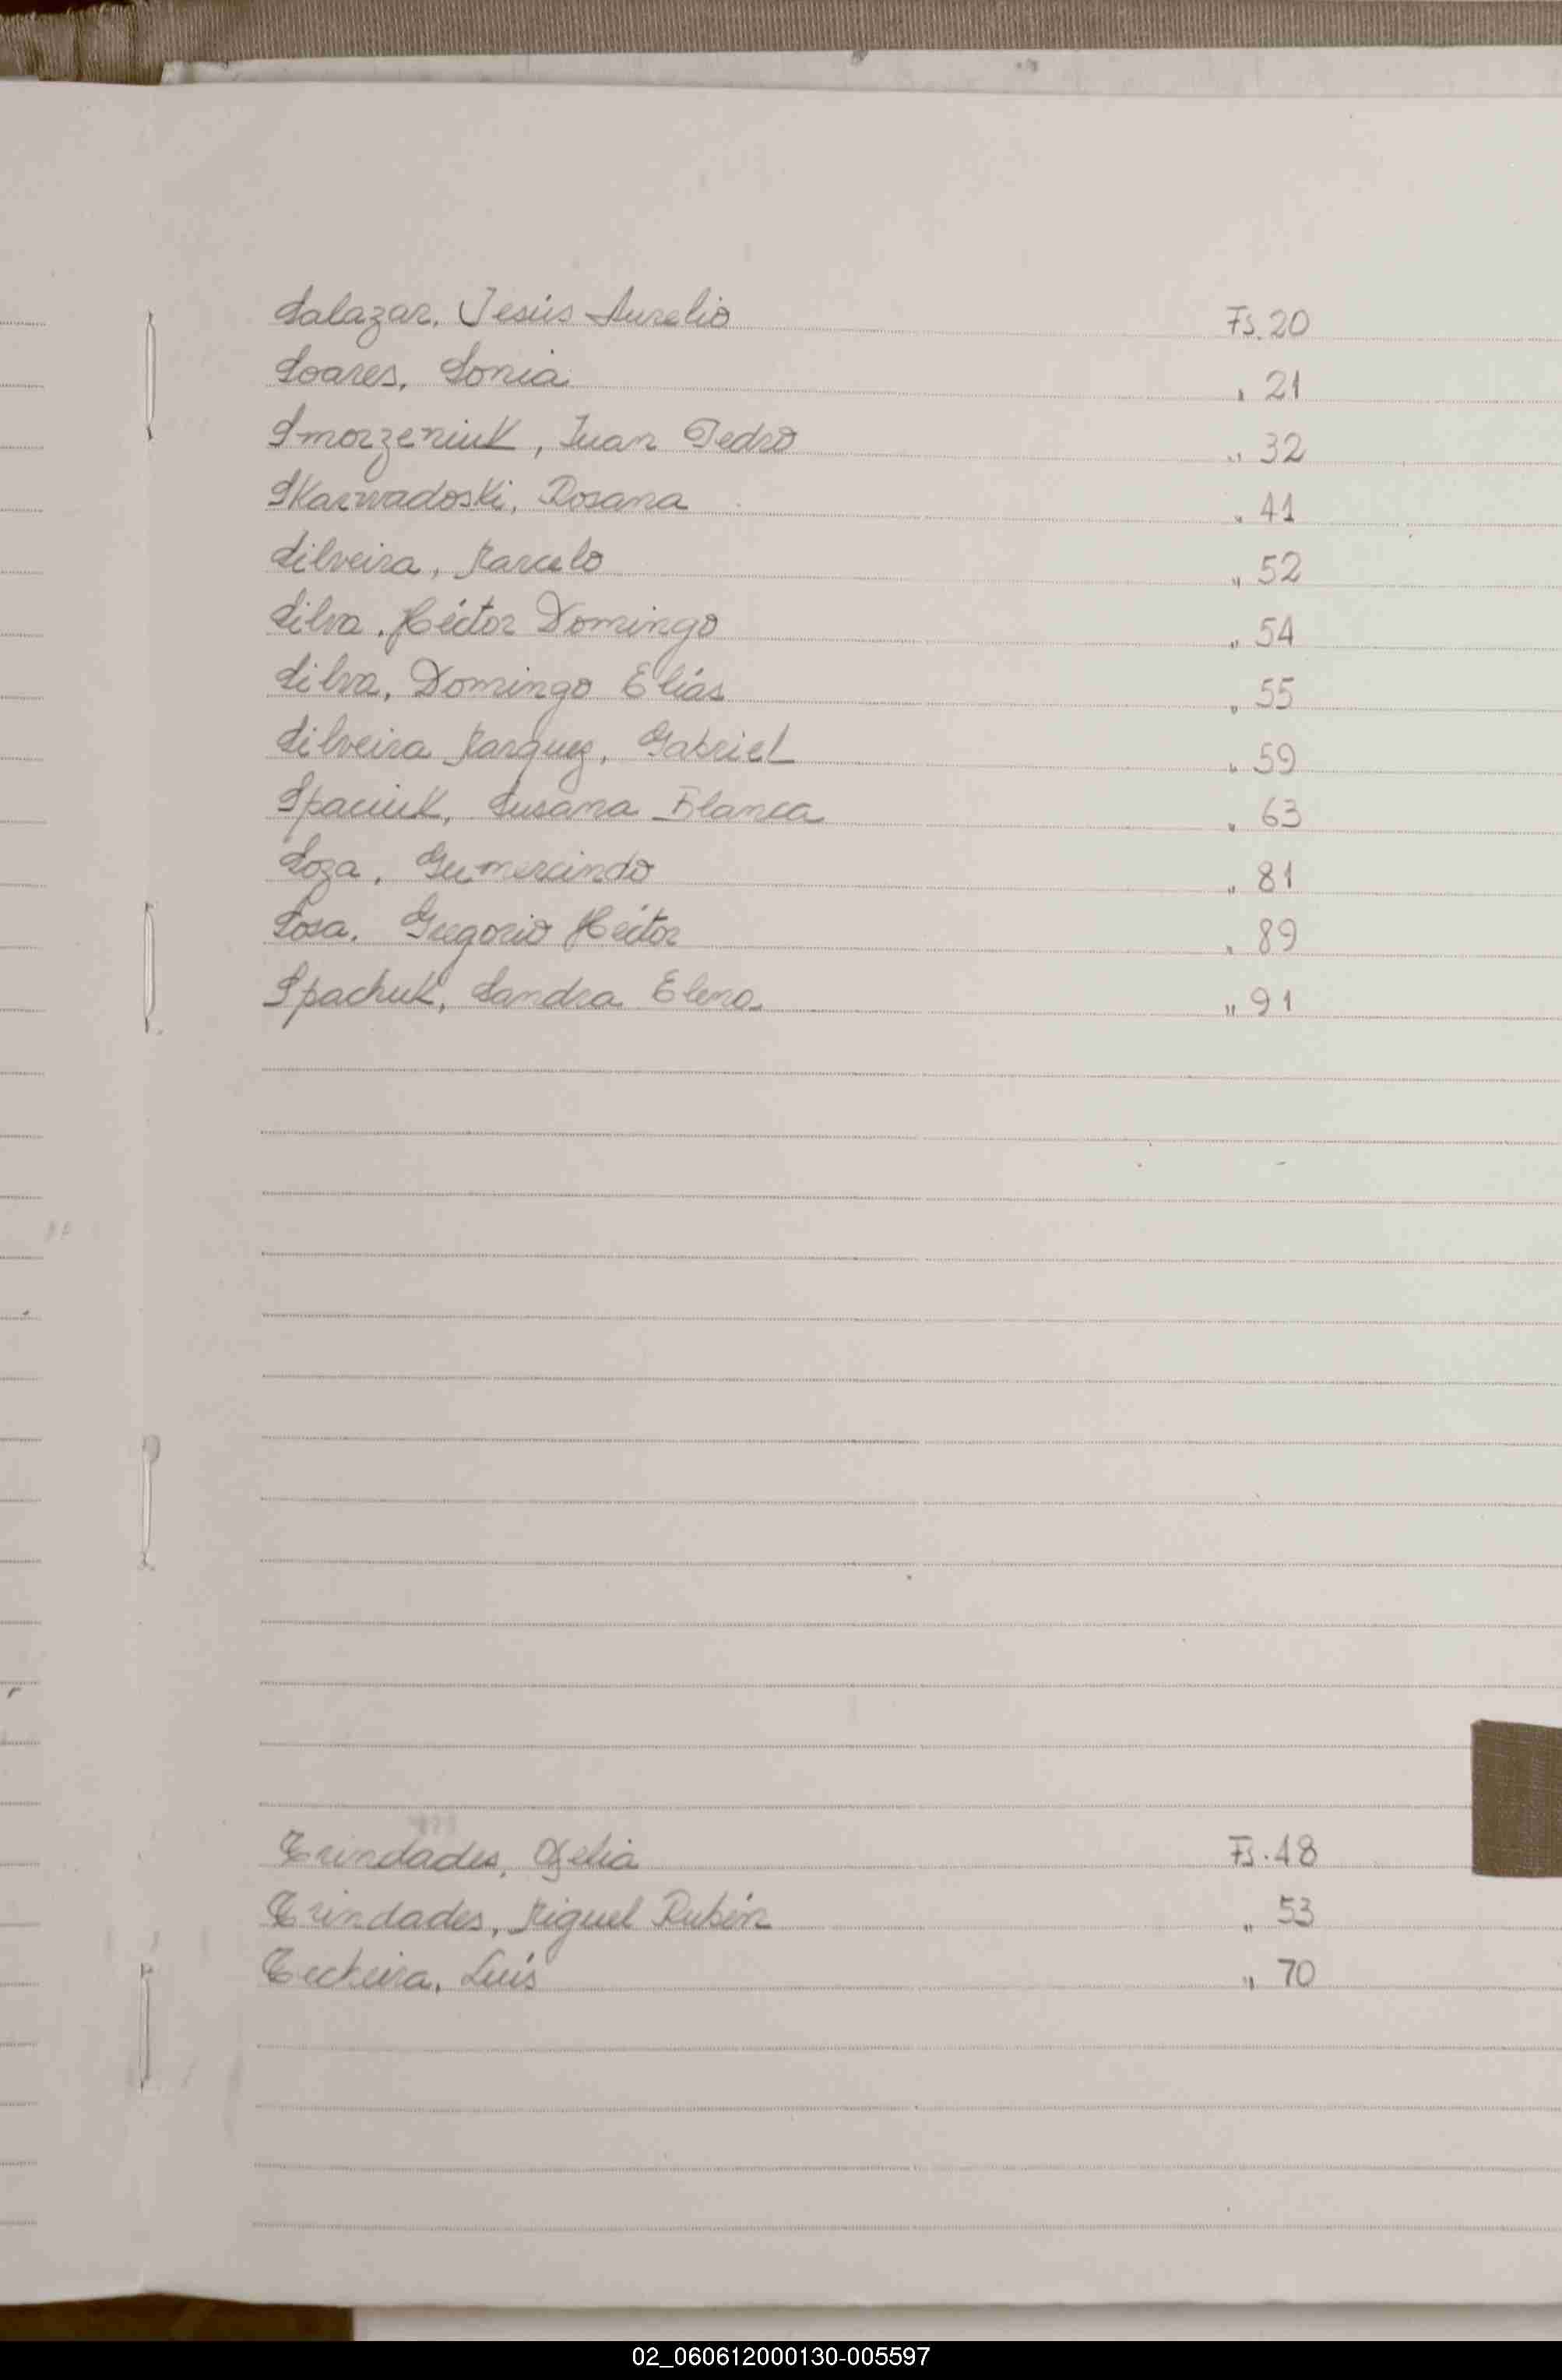 Salazar, Jesús Aurelio Fs. 20
Soares, Sonia " 21
Smorzeniuk, Juan Pedro " 32
Skarwadoski, Rosana " 41
Silveira, Marcelo " 52
Silva, Héctor Domingo " 54
Silva, Domingo Elías " 55
Silveira Marquez, Gabriel " 59
Spaciuk, Susana Blanca " 63
Soza, Gumercindo " 81
Sosa, Gregorio Héctor " 89
Spachuk, Sandra Elena " 91
Trindades, Ofelia Fs. 48
Trindades, Miguel Rubén " 53
Teckeira, Luis " 70
02_060612000130-005597